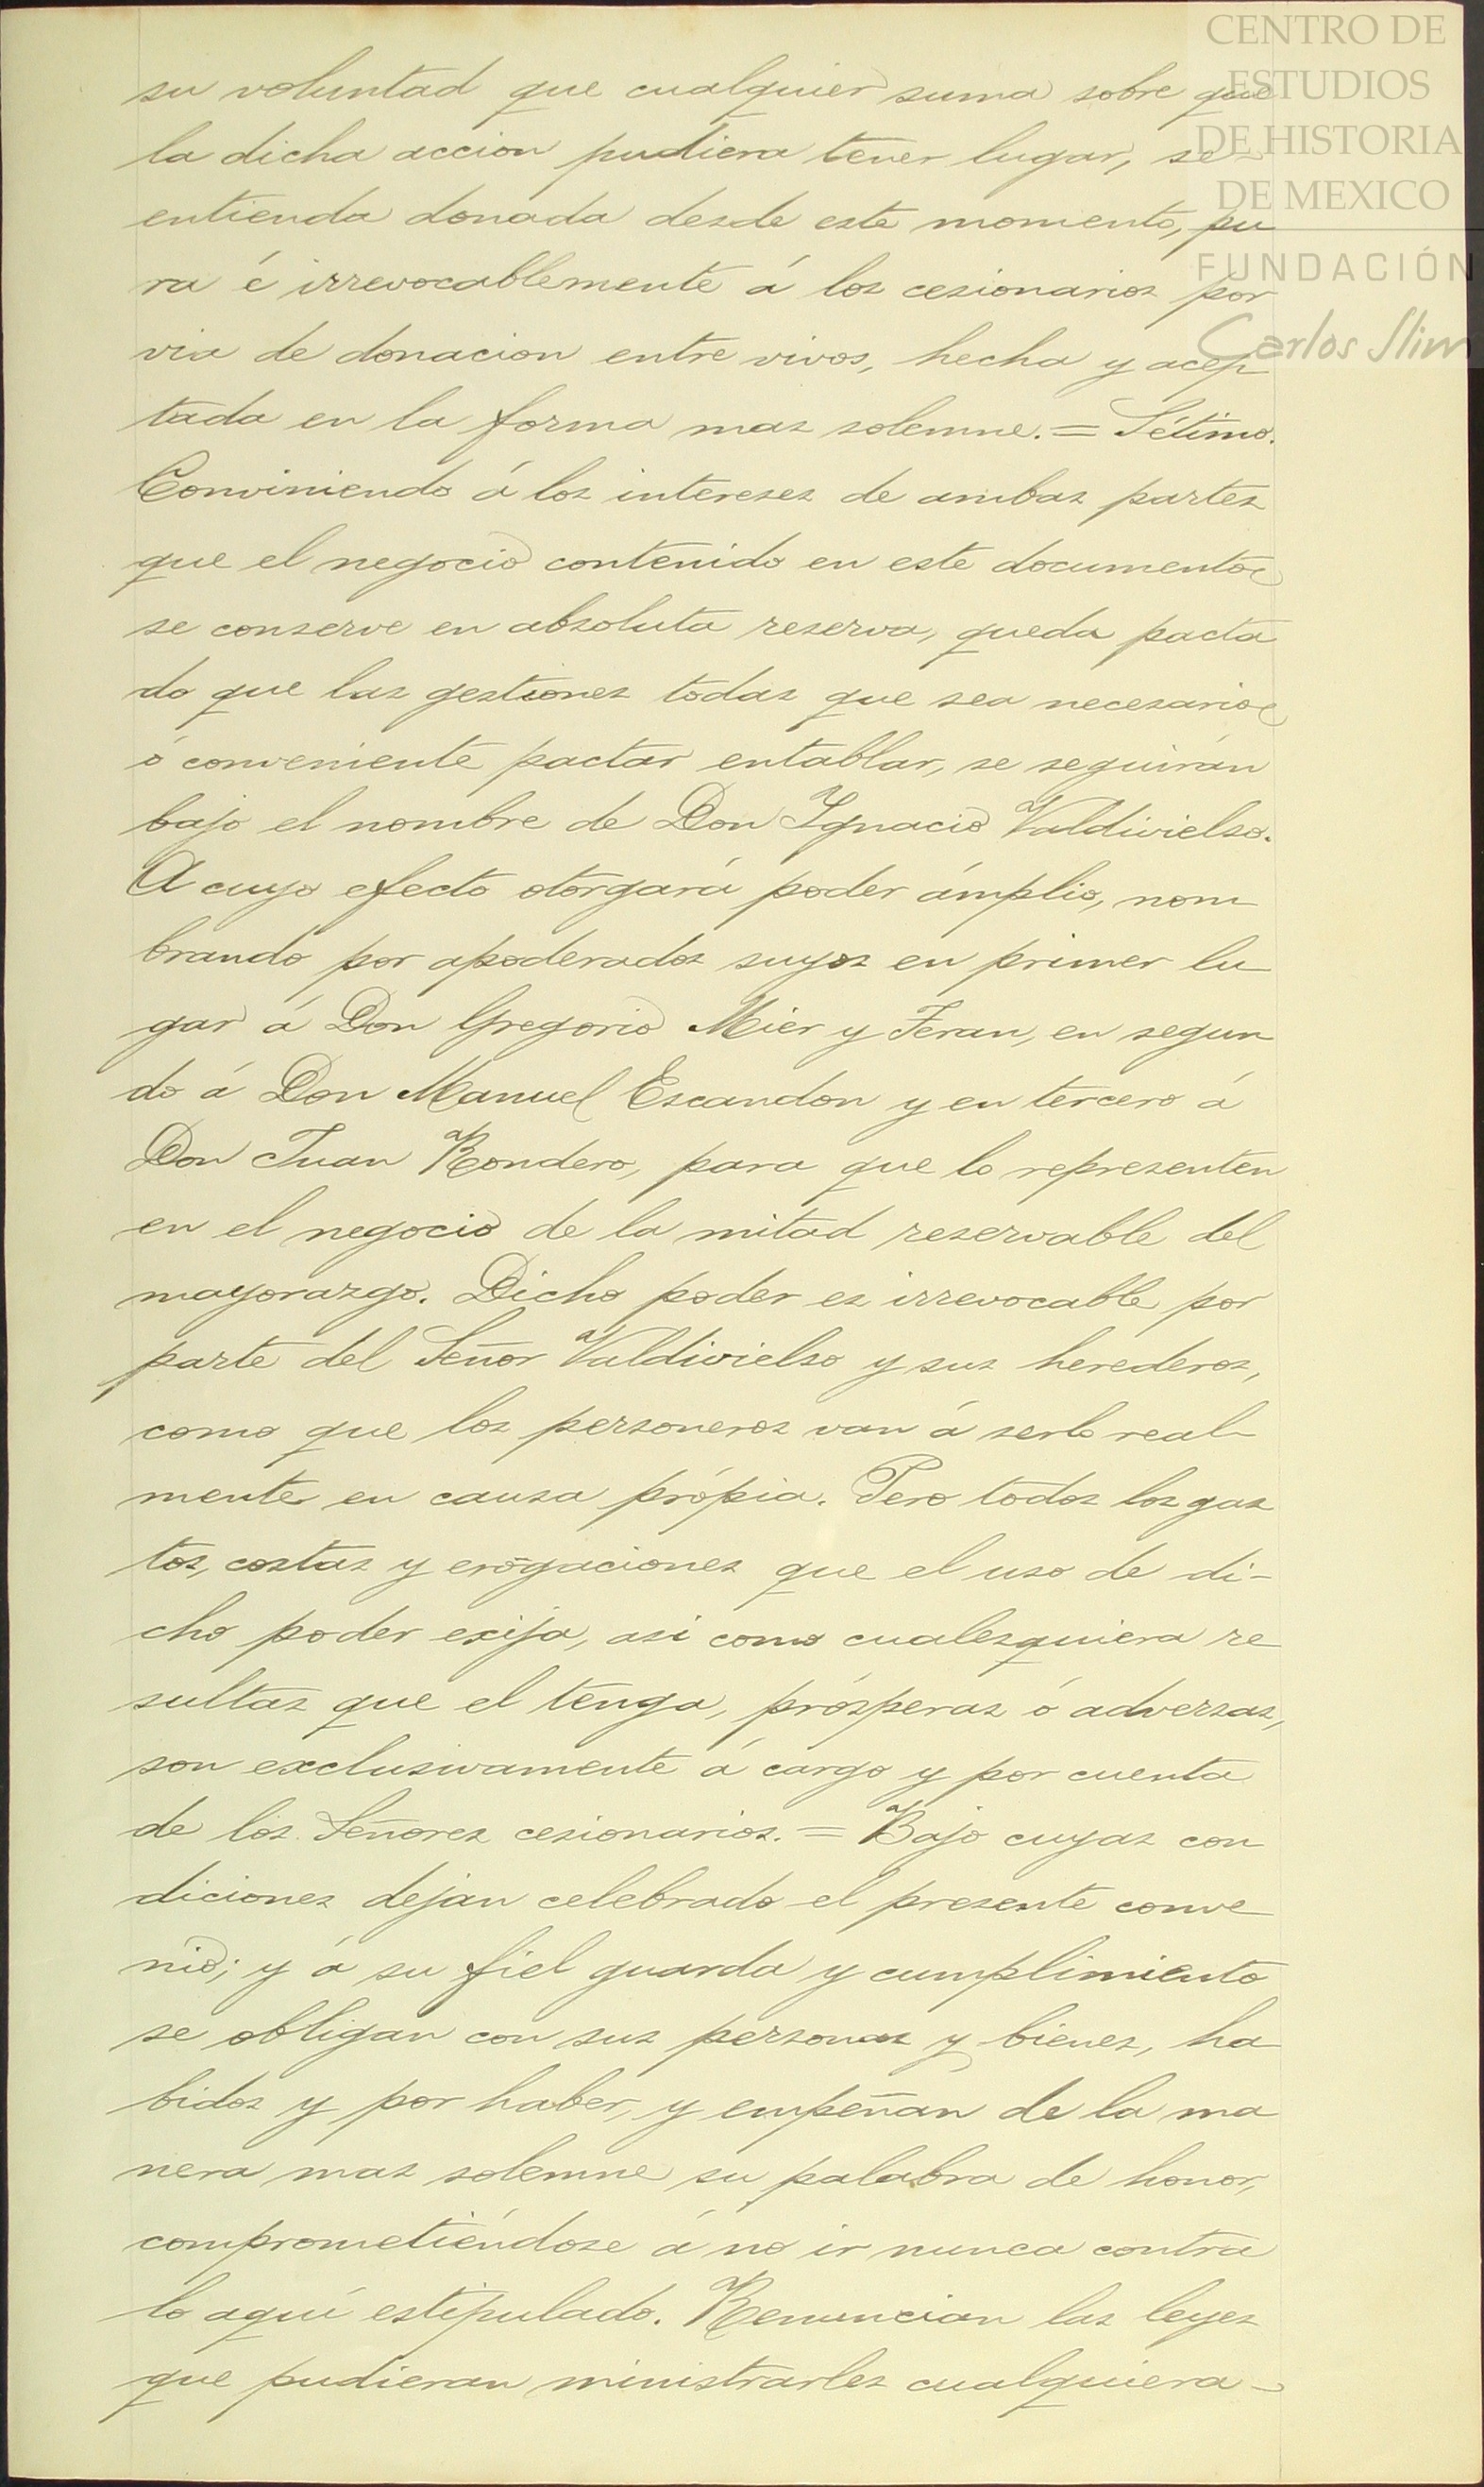 CENTRO DE
ESTUDIOS
DE HISTORIA
DE MEXICO
FUNDACIÓN
Carlos Slim
su voluntad que cualquier suma sobre que
la dicha accion pudiera tener lugar, se
entienda donada desde este momento, pu
ra é irrevocablemente á los cesionarios por
via de donacion entre vivos, hecha y acep
tada en la forma mas solemne. = Sétimo.
Conviniendo á los intereses de ambas partes
que el negocio contenido en este documento
se conserve en absoluta reserva, queda pacta
do que las gestiones todas que sea necesario
ó conveniente pactar entablar, se seguirán
bajo el nombre de Don Ygnacio Valdivielso.
A cuyo efecto otorgará poder ámplio, nom
brando por apoderados suyos en primer lu
gar á Don Gregorio Mier y Teran, en segun
do á Don Manuel Escandon y en tercero á
Don Juan Rondero, para que lo representen
en el negocio de la mitad reservable del
mayorazgo. Dicho poder es irrevocable por
parte del Señor Valdivielso y sus herederos,
como que los personeros van á serlo real-
mente en causa própia. Pero todos los gas
tos, costas y erogaciones que el uso de di-
cho poder exija, asi como cualesquiera re
sultas que el tenga, prósperas ó adversas,
son exclusivamente á cargo y por cuenta
de los Señores cesionarios. = Bajo cuyas con
diciones dejan celebrado el presente conve
nio; y á su fiel guarda y cumplimiento
se obligan con sus personas y bienes, ha
bidos y por haber, y empeñan de la ma
nera mas solemne su palabra de honor,
comprometiéndose á no ir nunca contra
lo aquí estipulado. Renuncian las leyes
que pudieran ministrarles cualquiera-